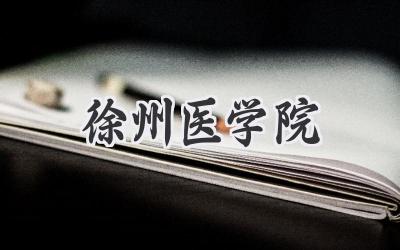 徐州医学院